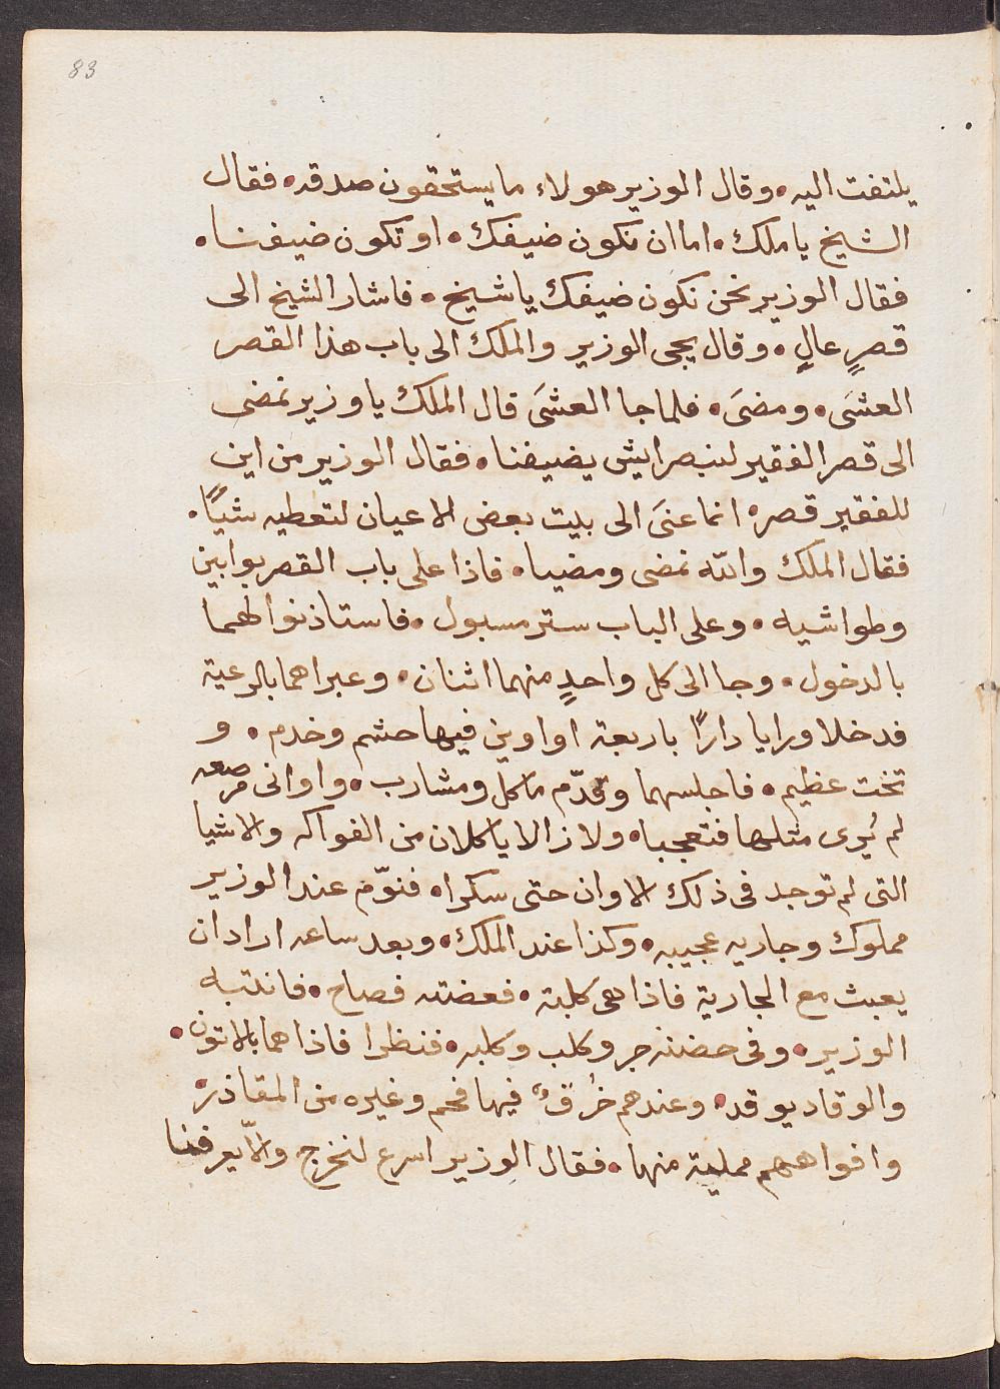 83
يلتفت اليه • وقال الوزير هولاء ما يستحقون صدقه • فقال
الشيخ يا ملك • اما ان نكون ضيفك • او تكون ضيفنا •
فقال الوزير نحن نكون ضيفك يا شيخ • فاشار الشيخ الى
قصرٍ عالٍ • وقال يجى الوزير والملك الى باب هذا القصر
العشَى • ومضىَ • فلما جا العشَى قال الملك يا وزير نمضى
الى قصر الفقير لنبصر ايش يضيفنا • فقال الوزير من اين
للفقير قصر • انما عنىَ الى بيت بعض الاعيان لتعطيه شياً •
فقال الملك والله نمضى ومضيا • فاذا على باب القصر بوابين
وطواشيه • وعلى الباب ستر مسبول • فاستاذنوا لهما
بالدخول • وجا الى كل واحدٍ منهما اثنان • وعبرا هما بالرعية
فدخلا ورايا داراً باربعة اواوين فيها حشم وخدم • و
تخت عظيم • فاجلسهما وقدّم ماكل ومشارب • واوانى مرصعه
لم يُرى مثلها فتعجبا • ولا زالا ياكلان من الفواكه والاشيا
التى لم توجد فى ذلك الاوان حتى سكرا • فنوّم عند الوزير
مملوك وجاريه عجيبه • وكذا عند الملك • وبعد ساعه اراد ان
يعبث مع الجارية فاذا هى كلبة • فعضته فصاح • فانتبه
الوزير • وفى حضنه جرو كلب وكلبه • فنظرا فاذا هما بالاتون •
والوقاد يوقد • وعندهم خُرقٌ فيها فحم وغيره من المقاذر •
وافواههم ممليه منها • فقال الوزير اسرع لنخرج والاّ يعرفنا